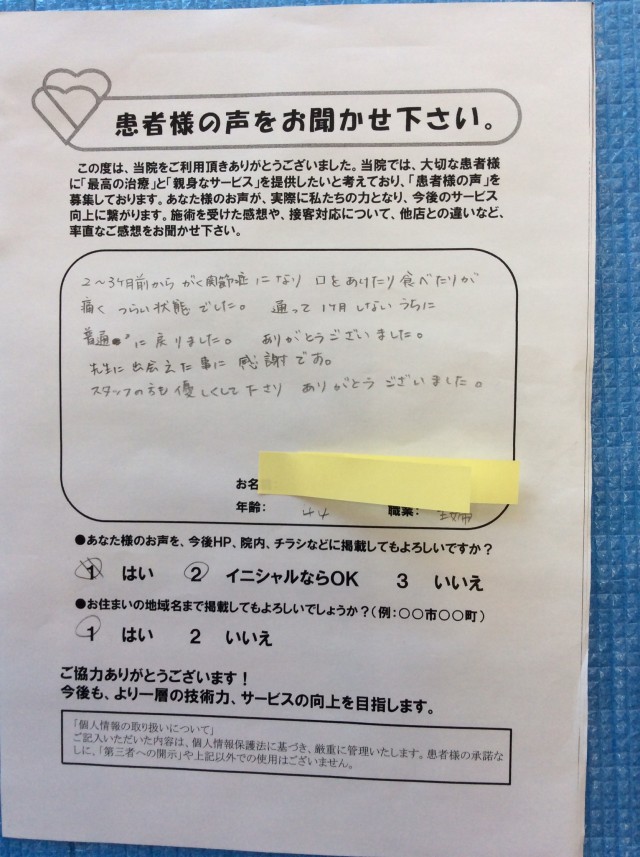 患者様の声をお聞かせ下さい。
この度は、当院をご利用頂きありがとうございました。当院では、大切な患者様
に「最高の治療」と「親身なサービス」を提供したいと考えており、「患者様の声」を
募集しております。あなた様のお声が、実際に私たちの力となり、今後のサービス
向上に繋がります。施術を受けた感想や、接客対応について、他店との違いなど、
率直なご感想をお聞かせ下さい。
2〜3ヶ月前から がく関節症 になり 口をあけたり 食べたりが
痛く つらい状態 でした。 通って 1ヶ月 しない うちに
普通 に 戻りました。 ありがとうございました。
先生に 出会えた 事に 感謝 です。
スタッフの方も 優しくして下さり ありがとう ございました。
お名
年齢: 44 職業: 主婦
●あなた様のお声を、今後HP、院内、チラシなどに掲載してもよろしいですか?
1 はい 2 イニシャルならOK 3 いいえ
●お住まいの地域名まで掲載してもよろしいでしょうか?(例:○○市○○町)
1 はい 2 いいえ
ご協力ありがとうございます!
今後も、より一層の技術力、サービスの向上を目指します。
「個人情報の取り扱いについて」
ご記入いただいた内容は、個人情報保護法に基づき、厳重に管理いたします。患者様の承諾な
しに、「第三者への開示」や上記以外での使用はございません。